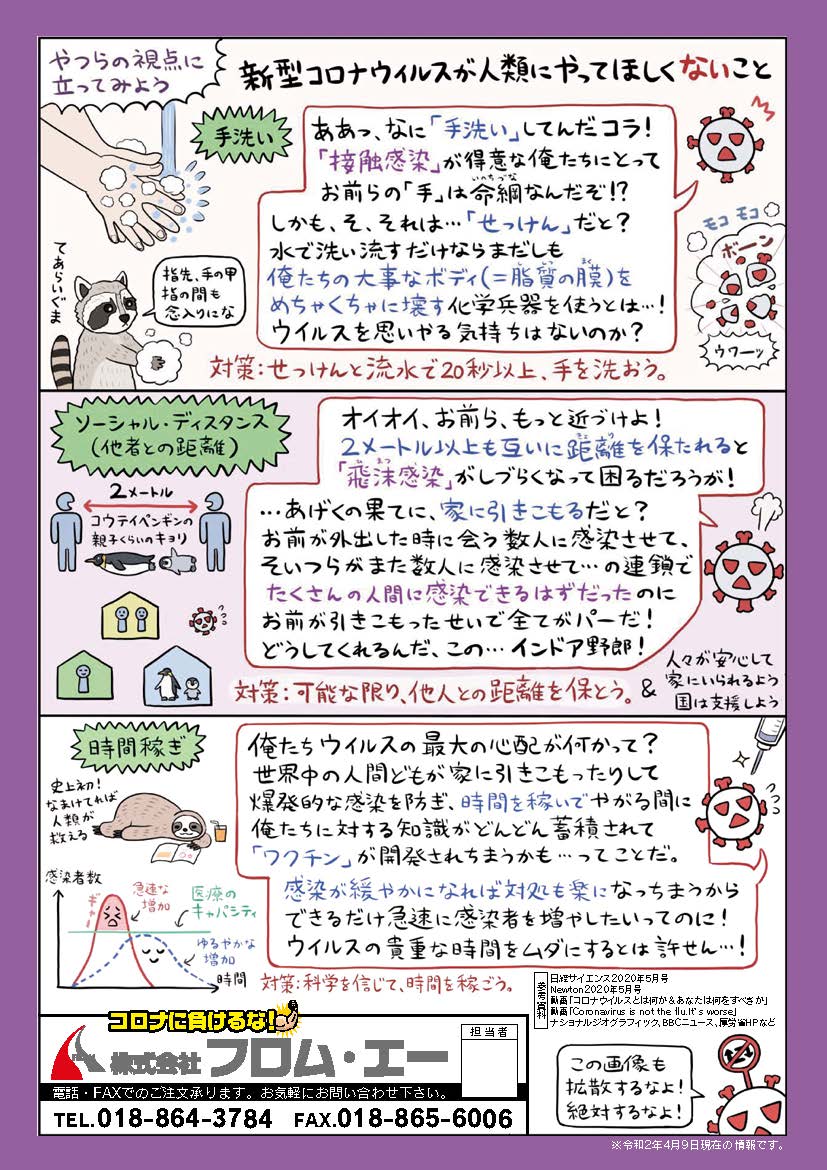 やつらの視点に
立ってみよう
新型コロナウイルスが人類にやってほしくないこと
手洗い
ああっ、なに「手洗い」してんだコラ！
「接触感染」が得意な俺たちにとって
お前らの「手」は命綱なんだぞ!?
いのちづな
しかも、そ、それは…「せっけん」だと？
水で洗い流すだけならまだしも
俺たちの大事なボディ(=脂質の膜)を
ししつ まく
めちゃくちゃに壊す化学兵器を使うとは…！
ウイルスを思いやる気持ちはないのか？
モコ モコ
ボーン
ウワーッ
てあらいぐま
指先、手の甲
指の間も
念入りにな
対策：せっけんと流水で20秒以上、手を洗おう。
ソーシャル・ディスタンス
(他者との距離)
2メートル
コウテイペンギンの
親子くらいのキョリ
オイオイ、お前ら、もっと近づけよ！
2メートル以上も互いに距離を保たれると
きょり
「飛沫感染」がしづらくなって困るだろうが！
ひまつ
…あげくの果てに、家に引きこもるだと？
お前が外出した時に会う数人に感染させて、
そいつらがまた数人に感染させて…の連鎖で
たくさんの人間に感染できるはずだったのに
お前が引きこもったせいで全てがパーだ！
どうしてくれるんだ、この…インドア野郎！
対策：可能な限り、他人との距離を保とう。
& 人々が安心して
家にいられるよう
国は支援しよう
時間稼ぎ
史上初！
なまけてれば
人類が
救える
俺たちウイルスの最大の心配が何かって？
世界中の人間どもが家に引きこもったりして
爆発的な感染を防ぎ、時間を稼いでやがる間に
俺たちに対する知識がどんどん蓄積されて
「ワクチン」が開発されちまうかも…ってことだ。
感染が緩やかになれば対処も楽になっちまうから
できるだけ急速に感染者を増やしたいってのに！
ウイルスの貴重な時間をムダにするとは許せん…！
感染者数
ギャー
急速な
増加
医療の
キャパシティ
ゆるやかな
増加
時間
対策：科学を信じて、時間を稼ごう。
参考資料
日経サイエンス2020年5月号
Newton2020年5月号
動画「コロナウイルスとは何か&あなたは何をすべきか」
動画「Coronavirus is not the flu.It's worse」
ナショナルジオグラフィック、BBCニュース、厚労省HPなど
コロナに負けるな！
株式会社 フロム・エー
担当者
電話・FAXでのご注文承ります。お気軽にお問い合わせ下さい。
TEL.018-864-3784 FAX.018-865-6006
この画像も
拡散するなよ！
絶対するなよ！
※令和2年4月9日現在の情報です。